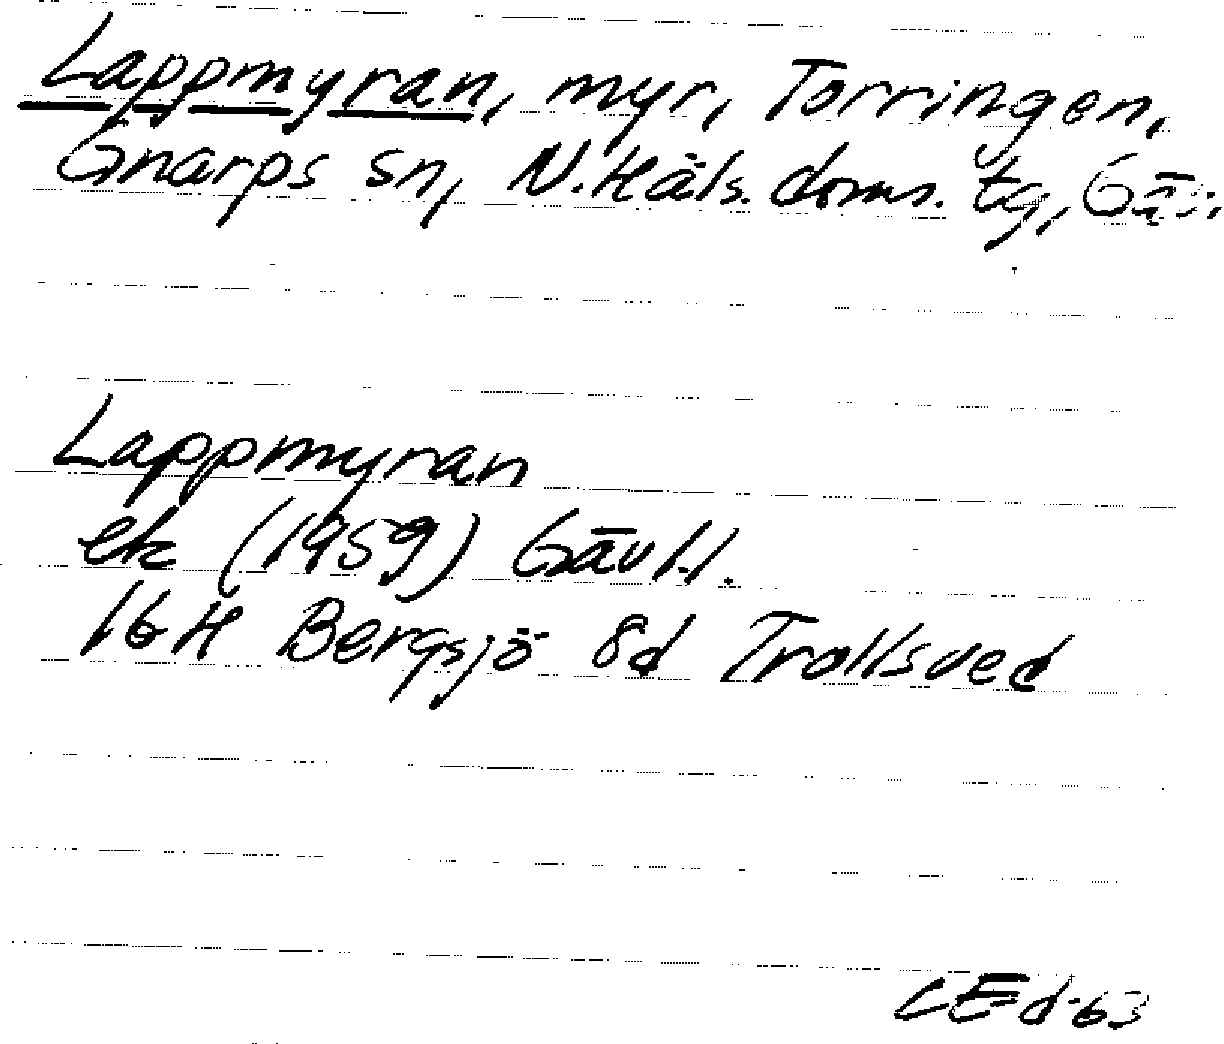 Lappmyran, myr, Torringen,
Gnarps sn, N. Häls. doms. tg, Gäv.
Lappmyran
ek (1959) Gävl.l.
16H Bergsjö 8d Trollsved
CEd-63